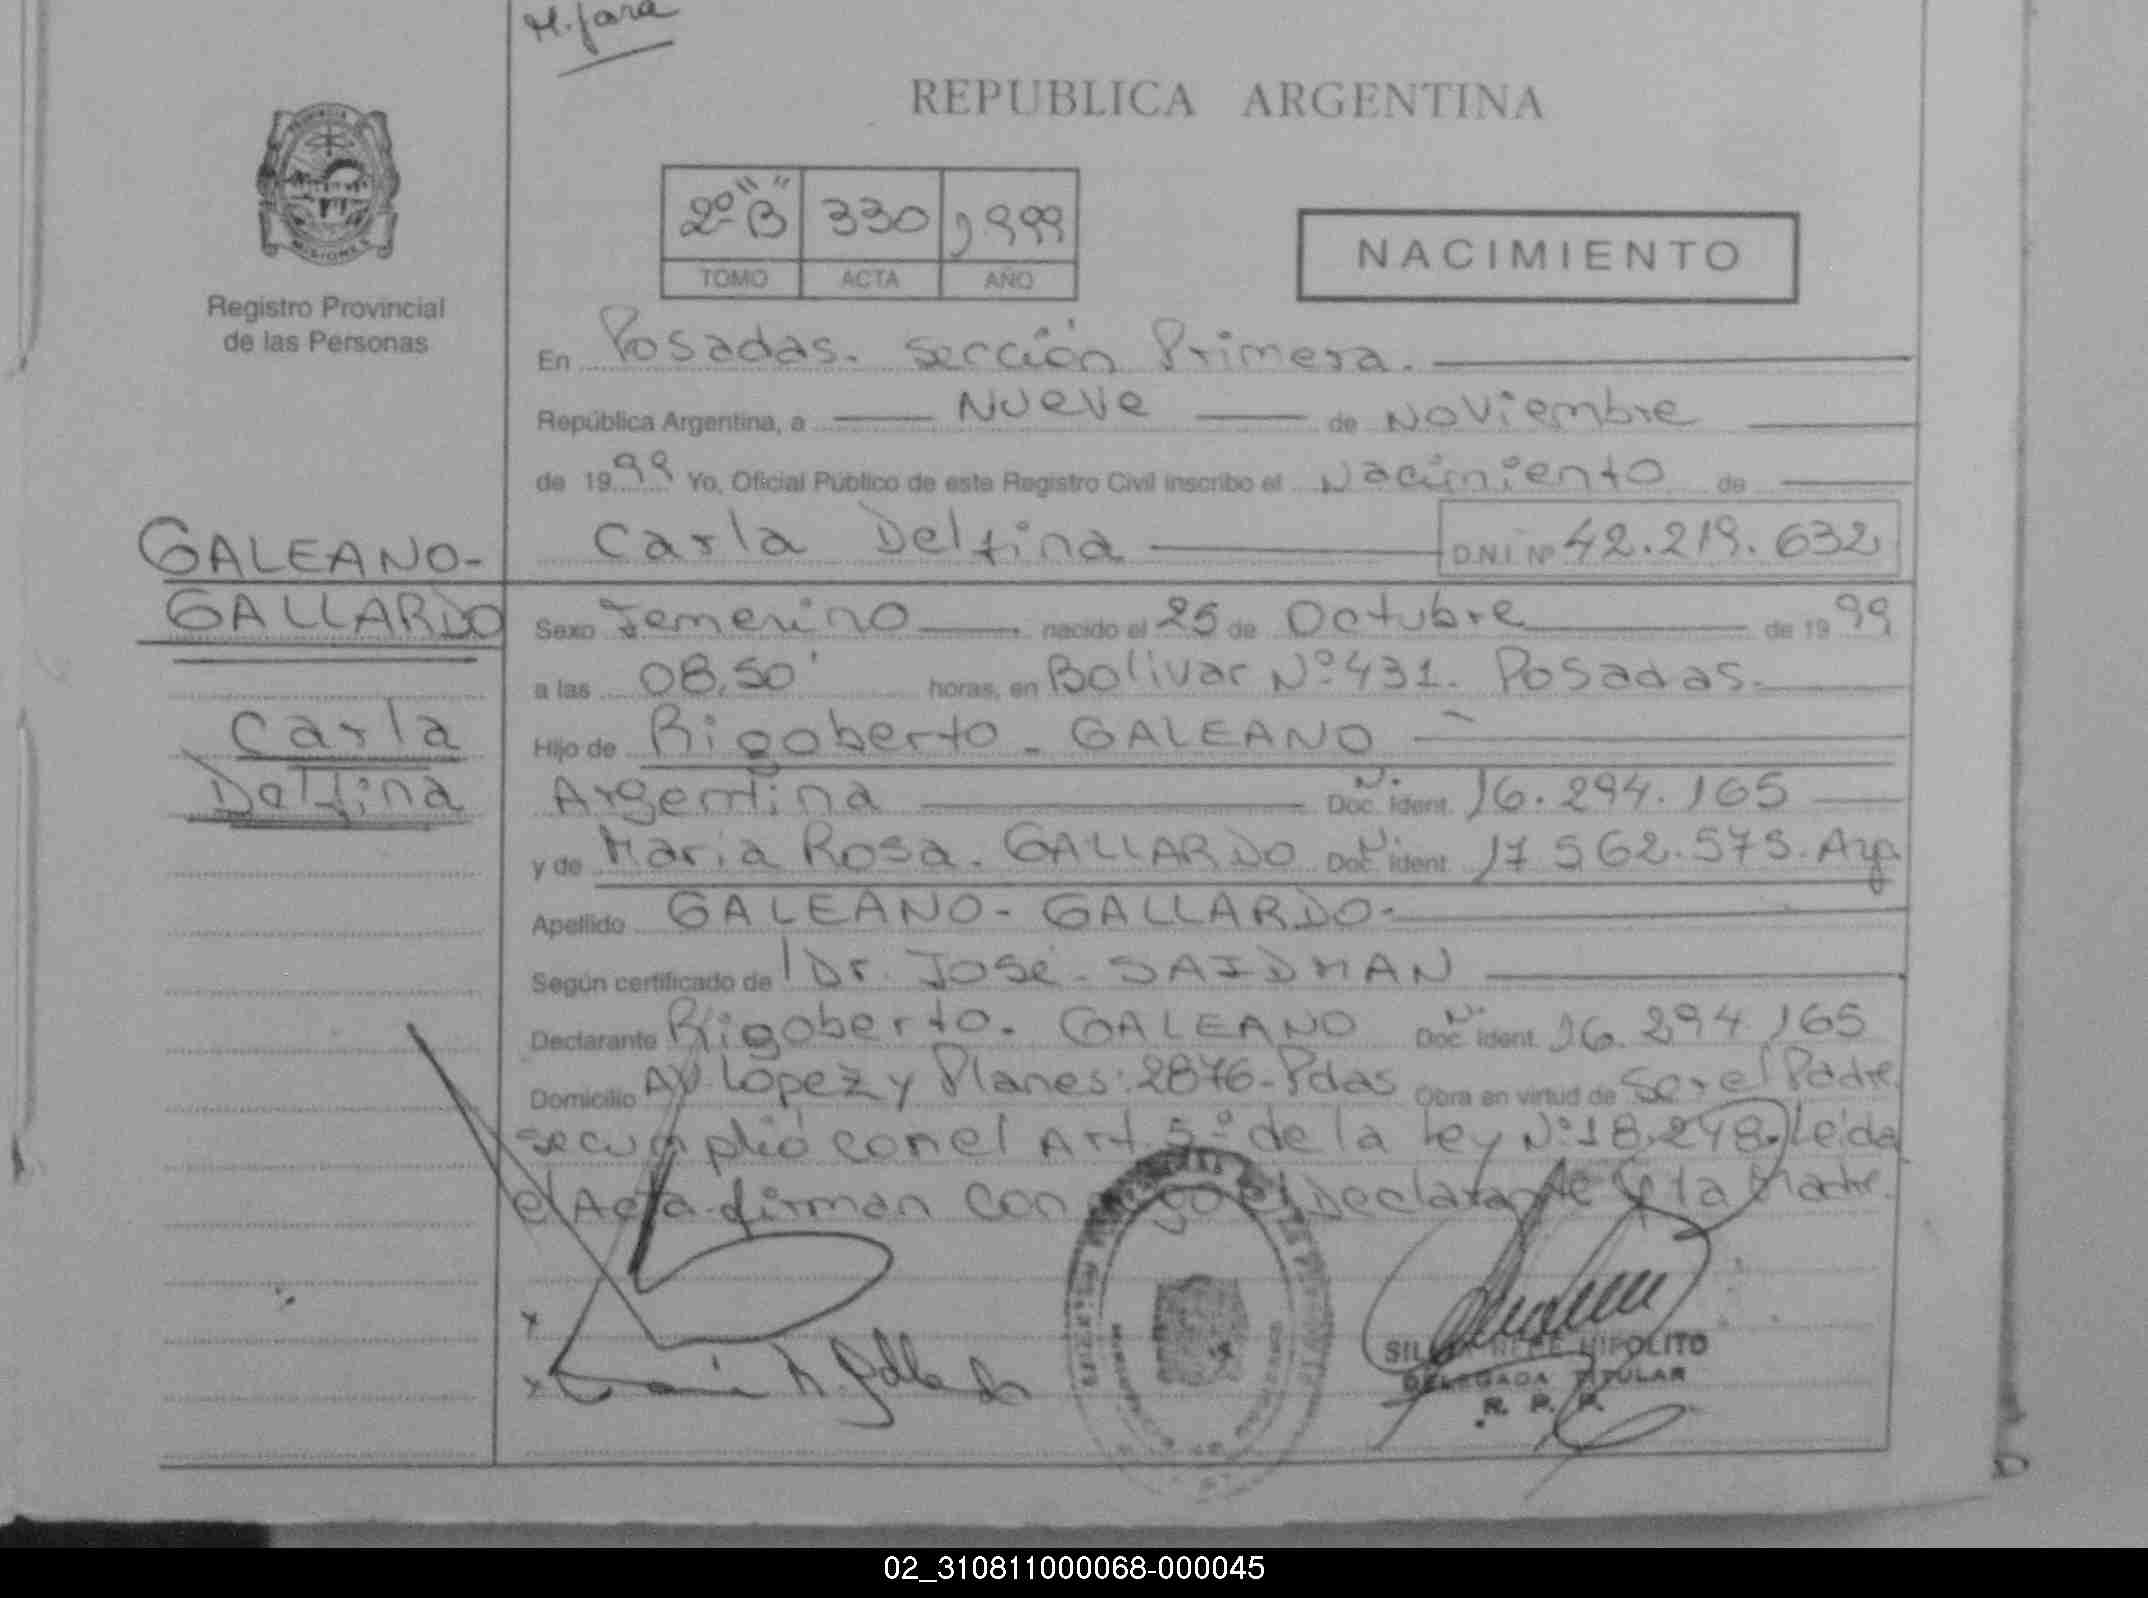 M. Jara
REPUBLICA ARGENTINA
2º "B" 330 1999
TOMO ACTA AÑO
NACIMIENTO
Registro Provincial
de las Personas
En Posadas. Sección Primera.
República Argentina, a Nueve de Noviembre
de 1999 Yo, Oficial Público de este Registro Civil inscribo el Nacimiento de
Carla Delfina D.N.I. Nº 42.219.632
GALEANO-
GALLARDO
Carla
Delfina
Sexo Femenino nacido el 25 de Octubre de 1999
a las 08,50' horas, en Bolivar Nº 431. Posadas.
Hijo de Rigoberto - GALEANO
Argentina N. Doc. Ident. 16.294.165
y de Maria Rosa. GALLARDO N. Doc. Ident. 17 562.575. Arg.
Apellido GALEANO - GALLARDO-
Según certificado de Dr. José - SAIDMAN
Declarante Rigoberto. GALEANO N. Doc. Ident. 16.294.165
Domicilio Av. Lopez y Planes: 2876- Pdas Obra en virtud de Ser el Padre
se cumplió con el Art. 5º de la Ley Nº 18.248. Leida
el Acta firman con migo el Declarante y la Madre.
HIPOLITO
DELEGADA TITULAR
R. P. P.
02_310811000068-000045